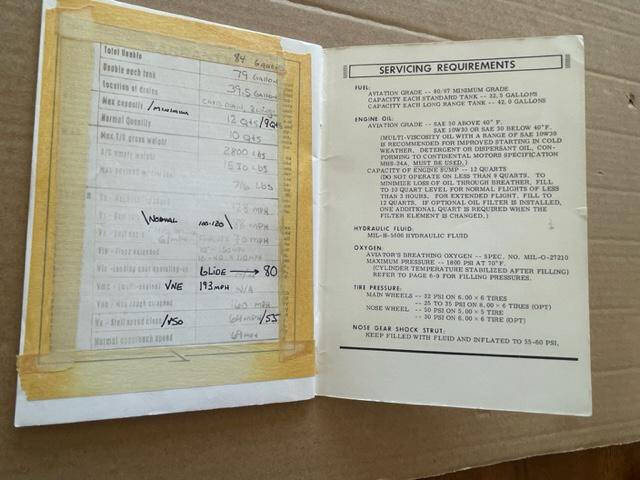 Total Usable 84 Gallons
Usable each tank 79 Gallon
Location of drains 39.5 Gallons
Max capacity / Minimum
Normal Quantity 12 Qts / 9 Qts
Max T/O gross weight 10 Qts
A/C empty weight 2800 Lbs
1570 Lbs
Lbs
MPH
NORMAL 100-120
70 MPH
GLIDE → 80
VNE 193 MPH
N/A
160 MPH
Vs - Stall speed clean / VSO 64 MPH / 55
Normal approach speed 69 MPH
SERVICING REQUIREMENTS
FUEL:
AVIATION GRADE -- 80/87 MINIMUM GRADE
CAPACITY EACH STANDARD TANK -- 32.5 GALLONS
CAPACITY EACH LONG RANGE TANK -- 42.0 GALLONS
ENGINE OIL:
AVIATION GRADE -- SAE 50 ABOVE 40° F.
SAE 10W30 OR SAE 30 BELOW 40°F.
(MULTI-VISCOSITY OIL WITH A RANGE OF SAE 10W30
IS RECOMMENDED FOR IMPROVED STARTING IN COLD
WEATHER. DETERGENT OR DISPERSANT OIL, CON-
FORMING TO CONTINENTAL MOTORS SPECIFICATION
MHS-24A, MUST BE USED.)
CAPACITY OF ENGINE SUMP -- 12 QUARTS
(DO NOT OPERATE ON LESS THAN 9 QUARTS. TO
MINIMIZE LOSS OF OIL THROUGH BREATHER, FILL
TO 10 QUART LEVEL FOR NORMAL FLIGHTS OF LESS
THAN 3 HOURS. FOR EXTENDED FLIGHT, FILL TO
12 QUARTS. IF OPTIONAL OIL FILTER IS INSTALLED,
ONE ADDITIONAL QUART IS REQUIRED WHEN THE
FILTER ELEMENT IS CHANGED.)
HYDRAULIC FLUID:
MIL-H-5606 HYDRAULIC FLUID
OXYGEN:
AVIATOR'S BREATHING OXYGEN -- SPEC. NO. MIL-O-27210
MAXIMUM PRESSURE -- 1800 PSI AT 70°F.
(CYLINDER TEMPERATURE STABILIZED AFTER FILLING)
REFER TO PAGE 6-9 FOR FILLING PRESSURES.
TIRE PRESSURE:
MAIN WHEELS -- 32 PSI ON 6.00 × 6 TIRES
-- 25 TO 35 PSI ON 8.00 × 6 TIRES (OPT)
NOSE WHEEL -- 50 PSI ON 5.00 × 5 TIRE
-- 30 PSI ON 6.00 × 6 TIRE (OPT)
NOSE GEAR SHOCK STRUT:
KEEP FILLED WITH FLUID AND INFLATED TO 55-60 PSI.